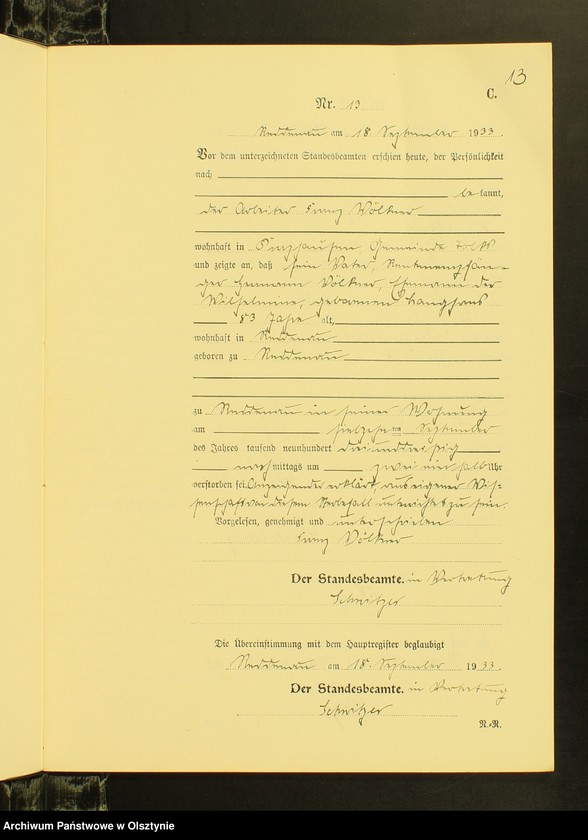 13
C.
Nr. 13
Reddenau am 18. September 1933.
Vor dem unterzeichneten Standesbeamten erschien heute, der Persönlichkeit
nach
bekannt,
der Arbeiter Franz Völkner
wohnhaft in Gemeinde Tolks
und zeigte an, daß sein Vater, Rentenempfän-
ger Hermann Völkner, Ehemann der
Wilhelmine, geborenen Langhans
83 Jahre alt,
wohnhaft in Reddenau
geboren zu Reddenau
zu Reddenau in seiner Wohnung
am siebzehnten September
des Jahres tausend neunhundert dreiunddreißig
nachmittags um zwei einhalb Uhr
verstorben sei. Anzeigender erklärt, aus eigener Wis-
senschaft von diesem Sterbefall unterrichtet zu sein.
Vorgelesen, genehmigt und unterschrieben
Franz Völkner
Der Standesbeamte. in Vertretung
Schwitzer
Die Übereinstimmung mit dem Hauptregister beglaubigt
Reddenau am 18. September 1933.
Der Standesbeamte. in Vertretung
Schwitzer
N.R.
Archiwum Państwowe w Olsztynie